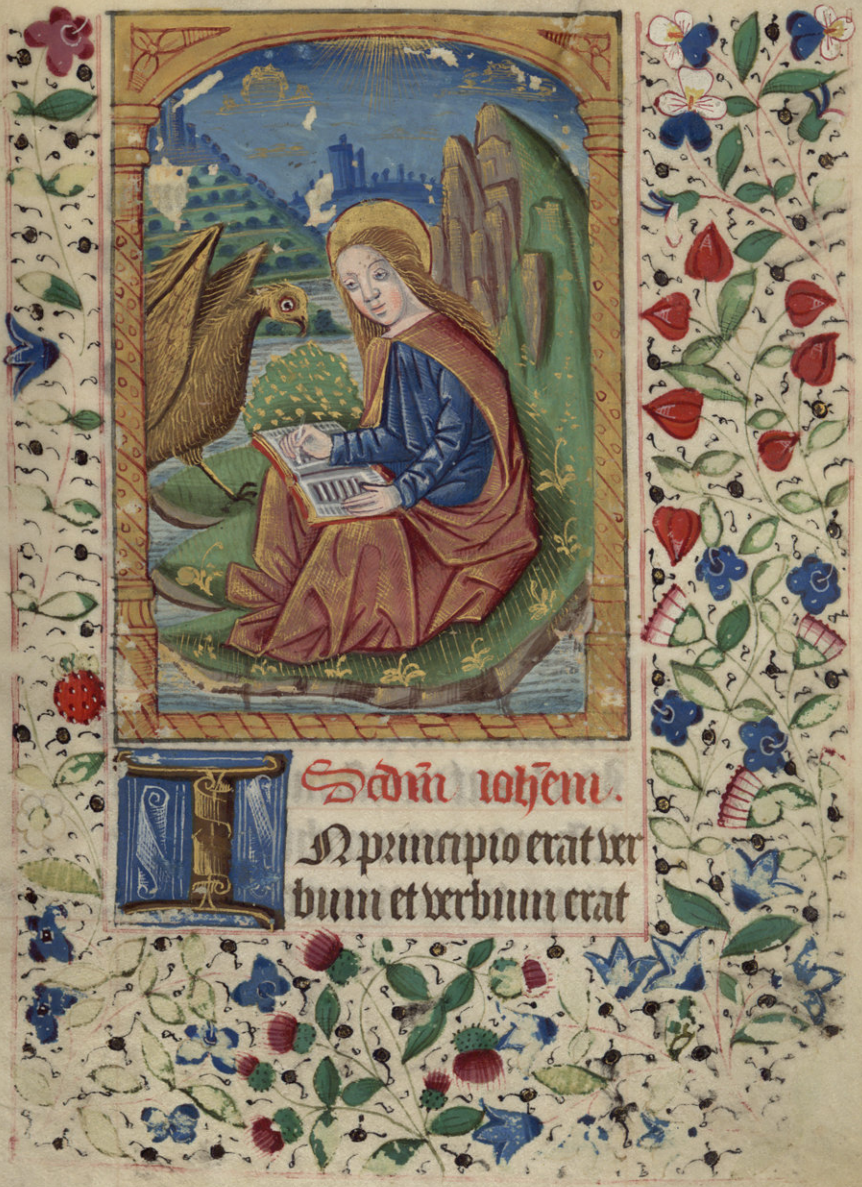 Scdm̄ ioh̄em.
IN principio erat ver
bum et verbum erat